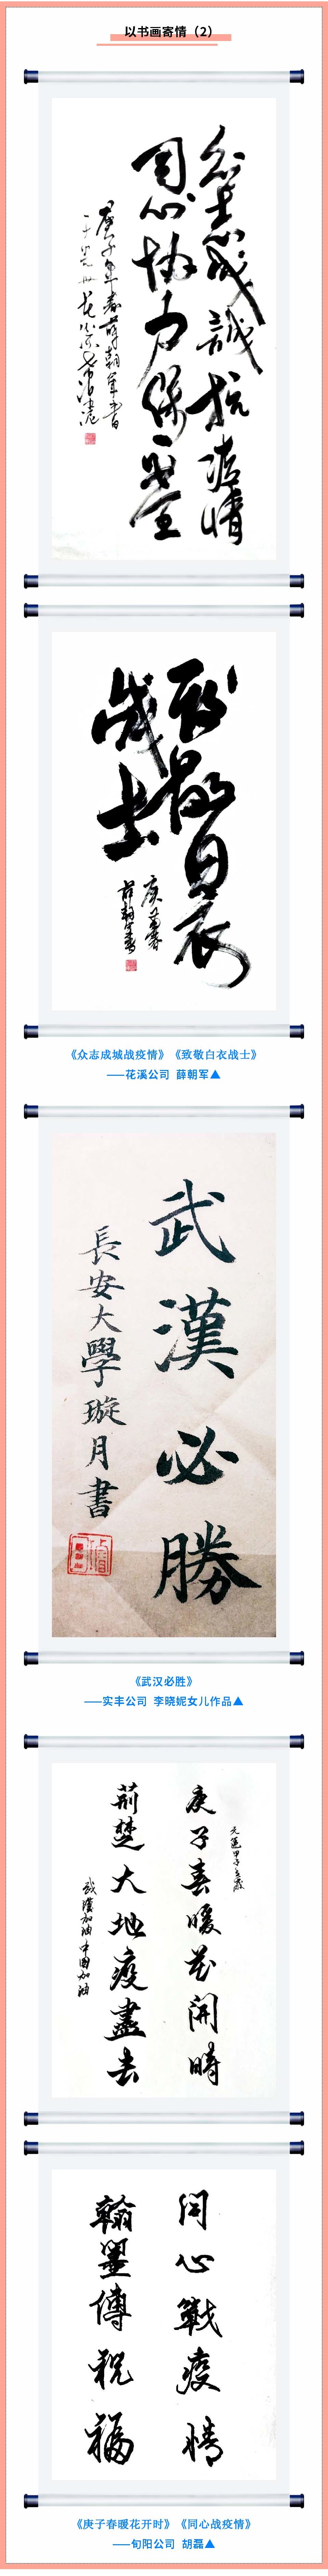 以书画寄情（2）
众志成诚抗疫情
同心协力保
庚子年春薛朝军书
致敬白衣
战士
庚子春
薛朝军书
《众志成城战疫情》《致敬白衣战士》
——花溪公司 薛朝军▲
武漢必勝
長安大學璇月書
《武汉必胜》
——实丰公司 李晓妮女儿作品▲
庚子春暖花開時
荊楚大地疫盡去
武漢加油中国加油
同心戰疫情
翰墨傳祝福
《庚子春暖花开时》《同心战疫情》
——旬阳公司 胡磊▲